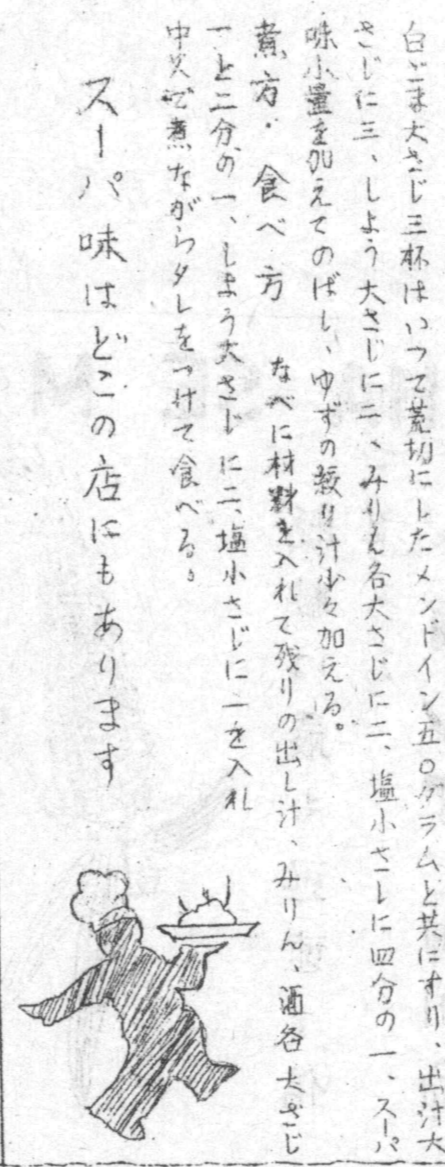 白ごま大さじ三杯はいつて荒切にしたメンドイン五〇グラムと共にすり、出汁大
さじに三、しよう大さじに二、みりん各大さじに二、塩小さじに四分の一、スーパ
味小量を加えてのばし、ゆずの絞り汁少々加える。
煮方・食べ方 なべに材料を入れて残りの出し汁、みりん、酒各大さじ
一と二分の一、しょう大さじに二、塩小さじに一を入れ
中火で煮ながらタレをつけて食べる。
スーパ味はどこの店にもあります